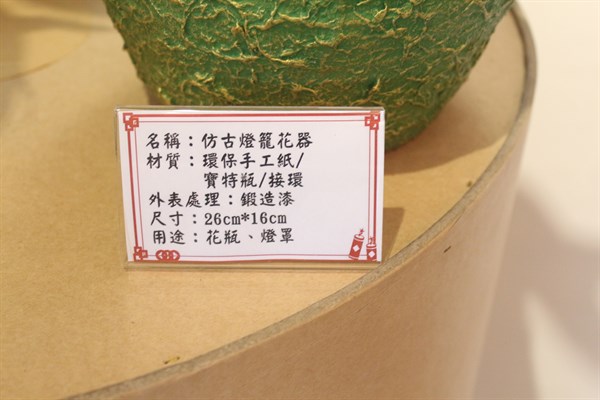 名稱：仿古燈籠花器
材質：環保手工紙/
寶特瓶/接環
外表處理：鍛造漆
尺寸：26cm*16cm
用途：花瓶、燈罩